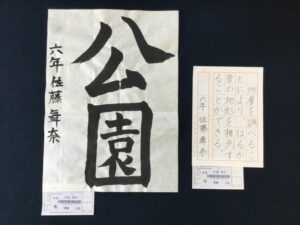 公園
六年 佐藤舞奈
地層を調べるこ
とにより、はるか
昔の地形を推測す
ることができる。
六年 佐藤舞奈